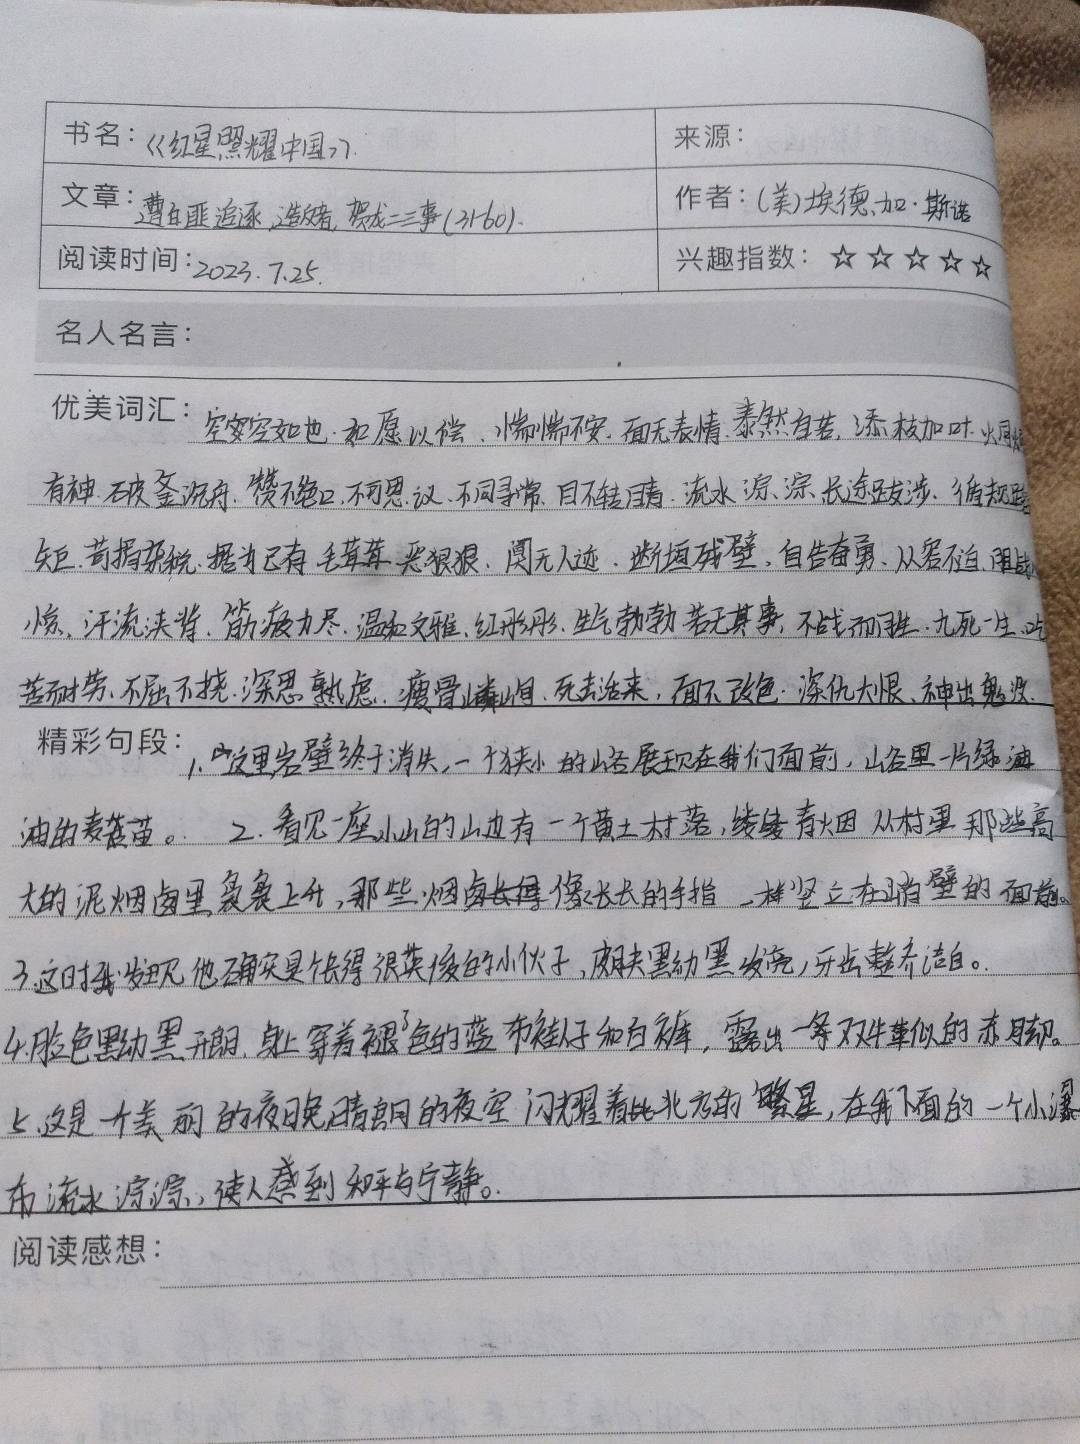 书名：《红星照耀中国》
来源：
文章：遭白匪追逐，造反者，贺龙二三事(31-60).
作者：(美)埃德加·斯诺
阅读时间：2023.7.25.
兴趣指数：☆☆☆☆☆
名人名言：
优美词汇：空空如也、如愿以偿、惴惴不安、面无表情、泰然自若、添枝加叶、炯炯
有神、破釜沉舟、赞不绝口、不可思议、不同寻常、目不转睛、流水淙淙、长途跋涉、循规蹈
矩、苛捐杂税、据为己有、毛茸茸、恶狠狠、阒无人迹、断垣残壁、自告奋勇、从容不迫、胆战
惊、汗流浃背、筋疲力尽、温和文雅、红彤彤、生气勃勃、若无其事、不战而胜、九死一生、吃
苦耐劳、不屈不挠、深思熟虑、瘦骨嶙峋、死去活来、面不改色、深仇大恨、神出鬼没.
精彩句段：1.这里岩壁终于消失，一个狭小的山谷展现在我们面前，山谷里一片绿油
油的麦苗。 2.看见一座小山的山边有一个黄土村落，缕缕青烟从村里那些高
大的泥烟囱里袅袅上升，那些烟囱像长长的手指一样竖立在峭壁的面前。
3.这时我发现他确实是个长得很英俊的小伙子，皮肤黑黝黑发亮，牙齿整齐洁白。
4.脸色黝黑开朗，身上穿着褪了色的蓝布褂子和白裤，露出一条双牛革似的赤脚。
5.这是一个美丽的夜晚，晴朗的夜空闪耀着北方的繁星，在我下面的一个小瀑
布流水淙淙，使人感到和平与宁静。
阅读感想：